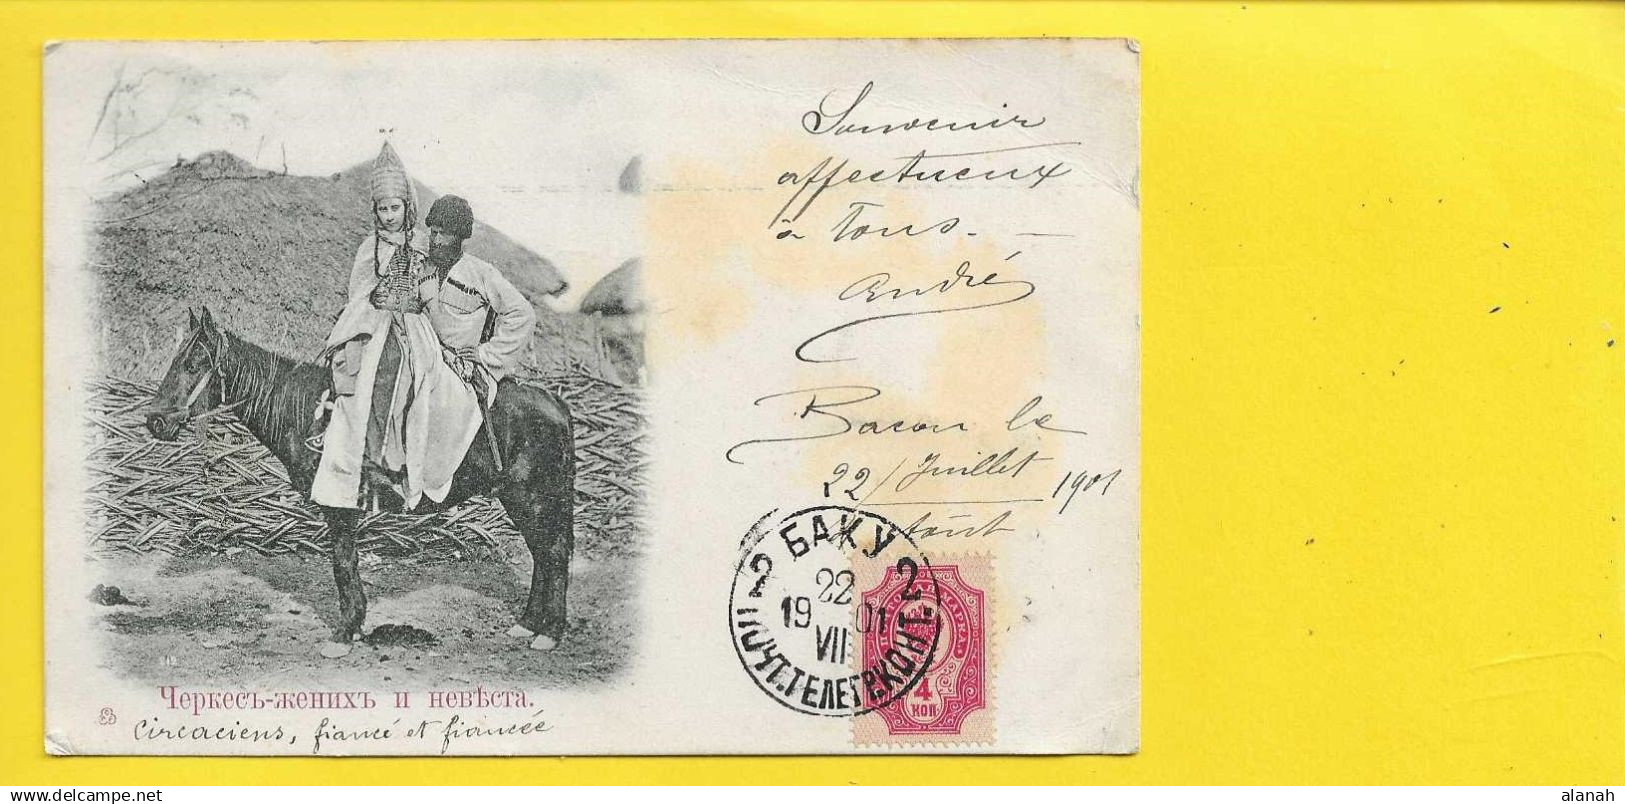 Souvenir
affectueux
à tous. —
André
Bacou le
22 / Juillet 1901
août
2 БАКУ 2
22
19 01
VII
ПОЧТ.ТЕЛЕГР.КОНТ.
ПОЧТОВАЯ МАРКА.
4
КОП
Черкесъ-женихъ и невѣста.
Circaciens, fiancé et fiancée
alanah